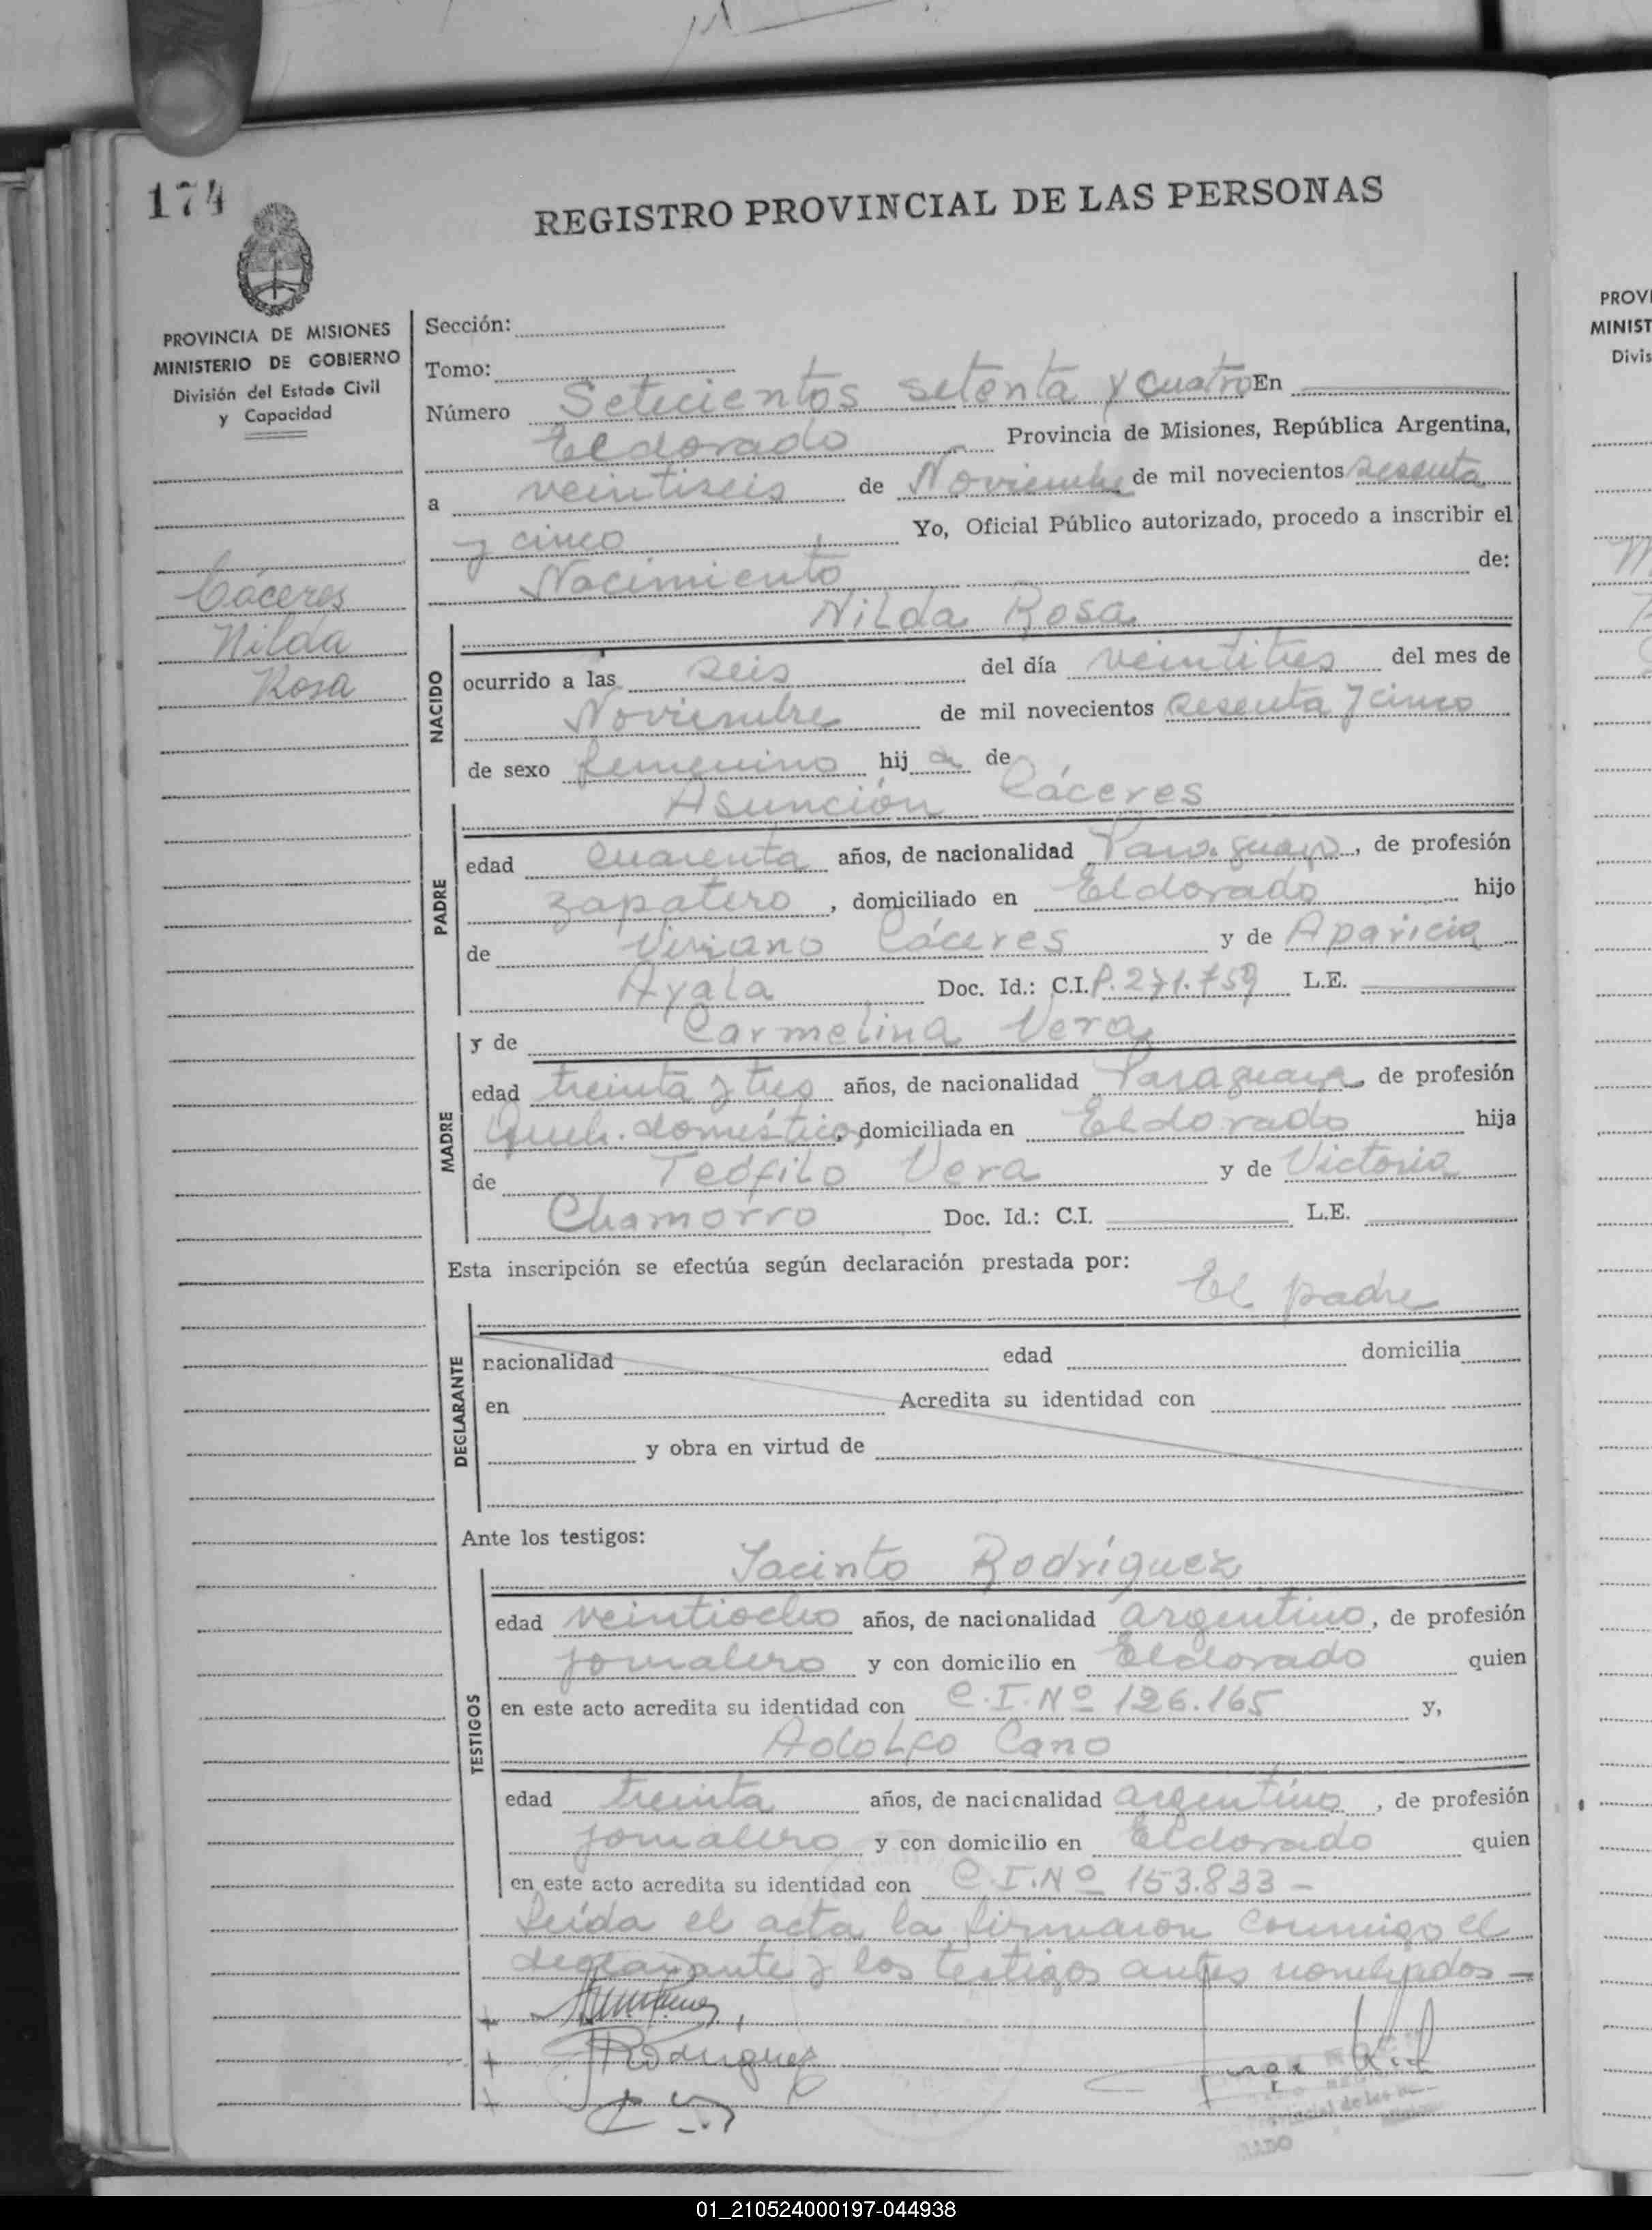 174
REGISTRO PROVINCIAL DE LAS PERSONAS
PROVINCIA DE MISIONES
MINISTERIO DE GOBIERNO
División del Estado Civil
y Capacidad
Cáceres
Nilda
Rosa
Sección:
Tomo:
Número Setecientos setenta y cuatro En
Eldorado Provincia de Misiones, República Argentina,
a veintiseis de Noviembre de mil novecientos sesenta
y cinco Yo, Oficial Público autorizado, procedo a inscribir el
Nacimiento de:
NACIDO
Nilda Rosa
ocurrido a las seis del día veintitres del mes de
Noviembre de mil novecientos sesenta y cinco
de sexo femenino hij a de
PADRE
Asunción Cáceres
edad cuarenta años, de nacionalidad Paraguayo, de profesión
zapatero, domiciliado en Eldorado hijo
de Cáceres y de Aparicia
Ayala Doc. Id.: C.I. P. 271.759 L.E.
MADRE
y de Carmelina Vera
edad treinta y tres años, de nacionalidad Paraguaya, de profesión
Queh. domésticos, domiciliada en Eldorado hija
de Teófilo Vera y de Victoria
Chamorro Doc. Id.: C.I. L.E.
Esta inscripción se efectúa según declaración prestada por:
El padre
DECLARANTE
nacionalidad edad domicilia
en Acredita su identidad con
y obra en virtud de
Ante los testigos:
TESTIGOS
Jacinto Rodríguez
edad veintiocho años, de nacionalidad argentino, de profesión
jornalero y con domicilio en Eldorado quien
en este acto acredita su identidad con C.I. Nº 126.165 y,
Adolfo Cano
edad treinta años, de nacionalidad argentino, de profesión
jornalero y con domicilio en Eldorado quien
en este acto acredita su identidad con C.I. Nº 153.833 -
Leída el acta la firmaron conmigo el
declarante y los testigos antes nombrados -
Rodriguez
PROVI
MINIST
Divis
01_210524000197-044938